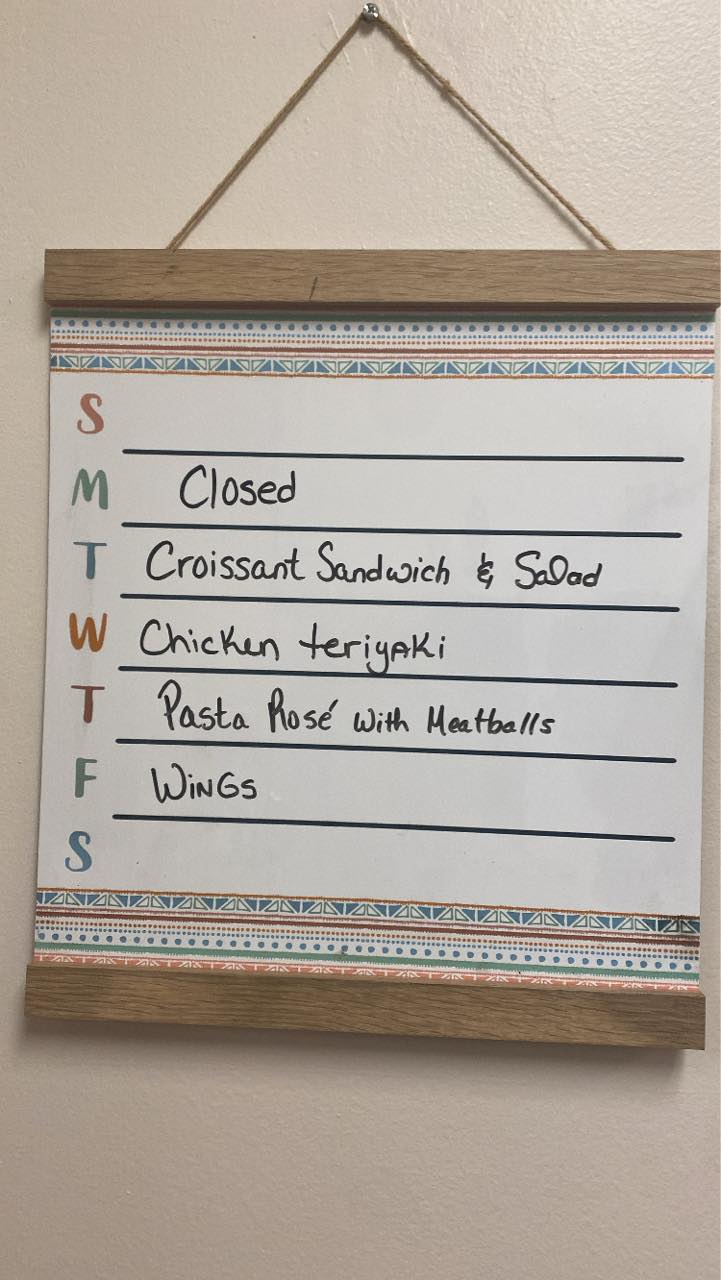 S
M Closed
T Croissant Sandwich & Salad
W Chicken teriyaki
T Pasta Rosé with Meatballs
F WiNGs
S